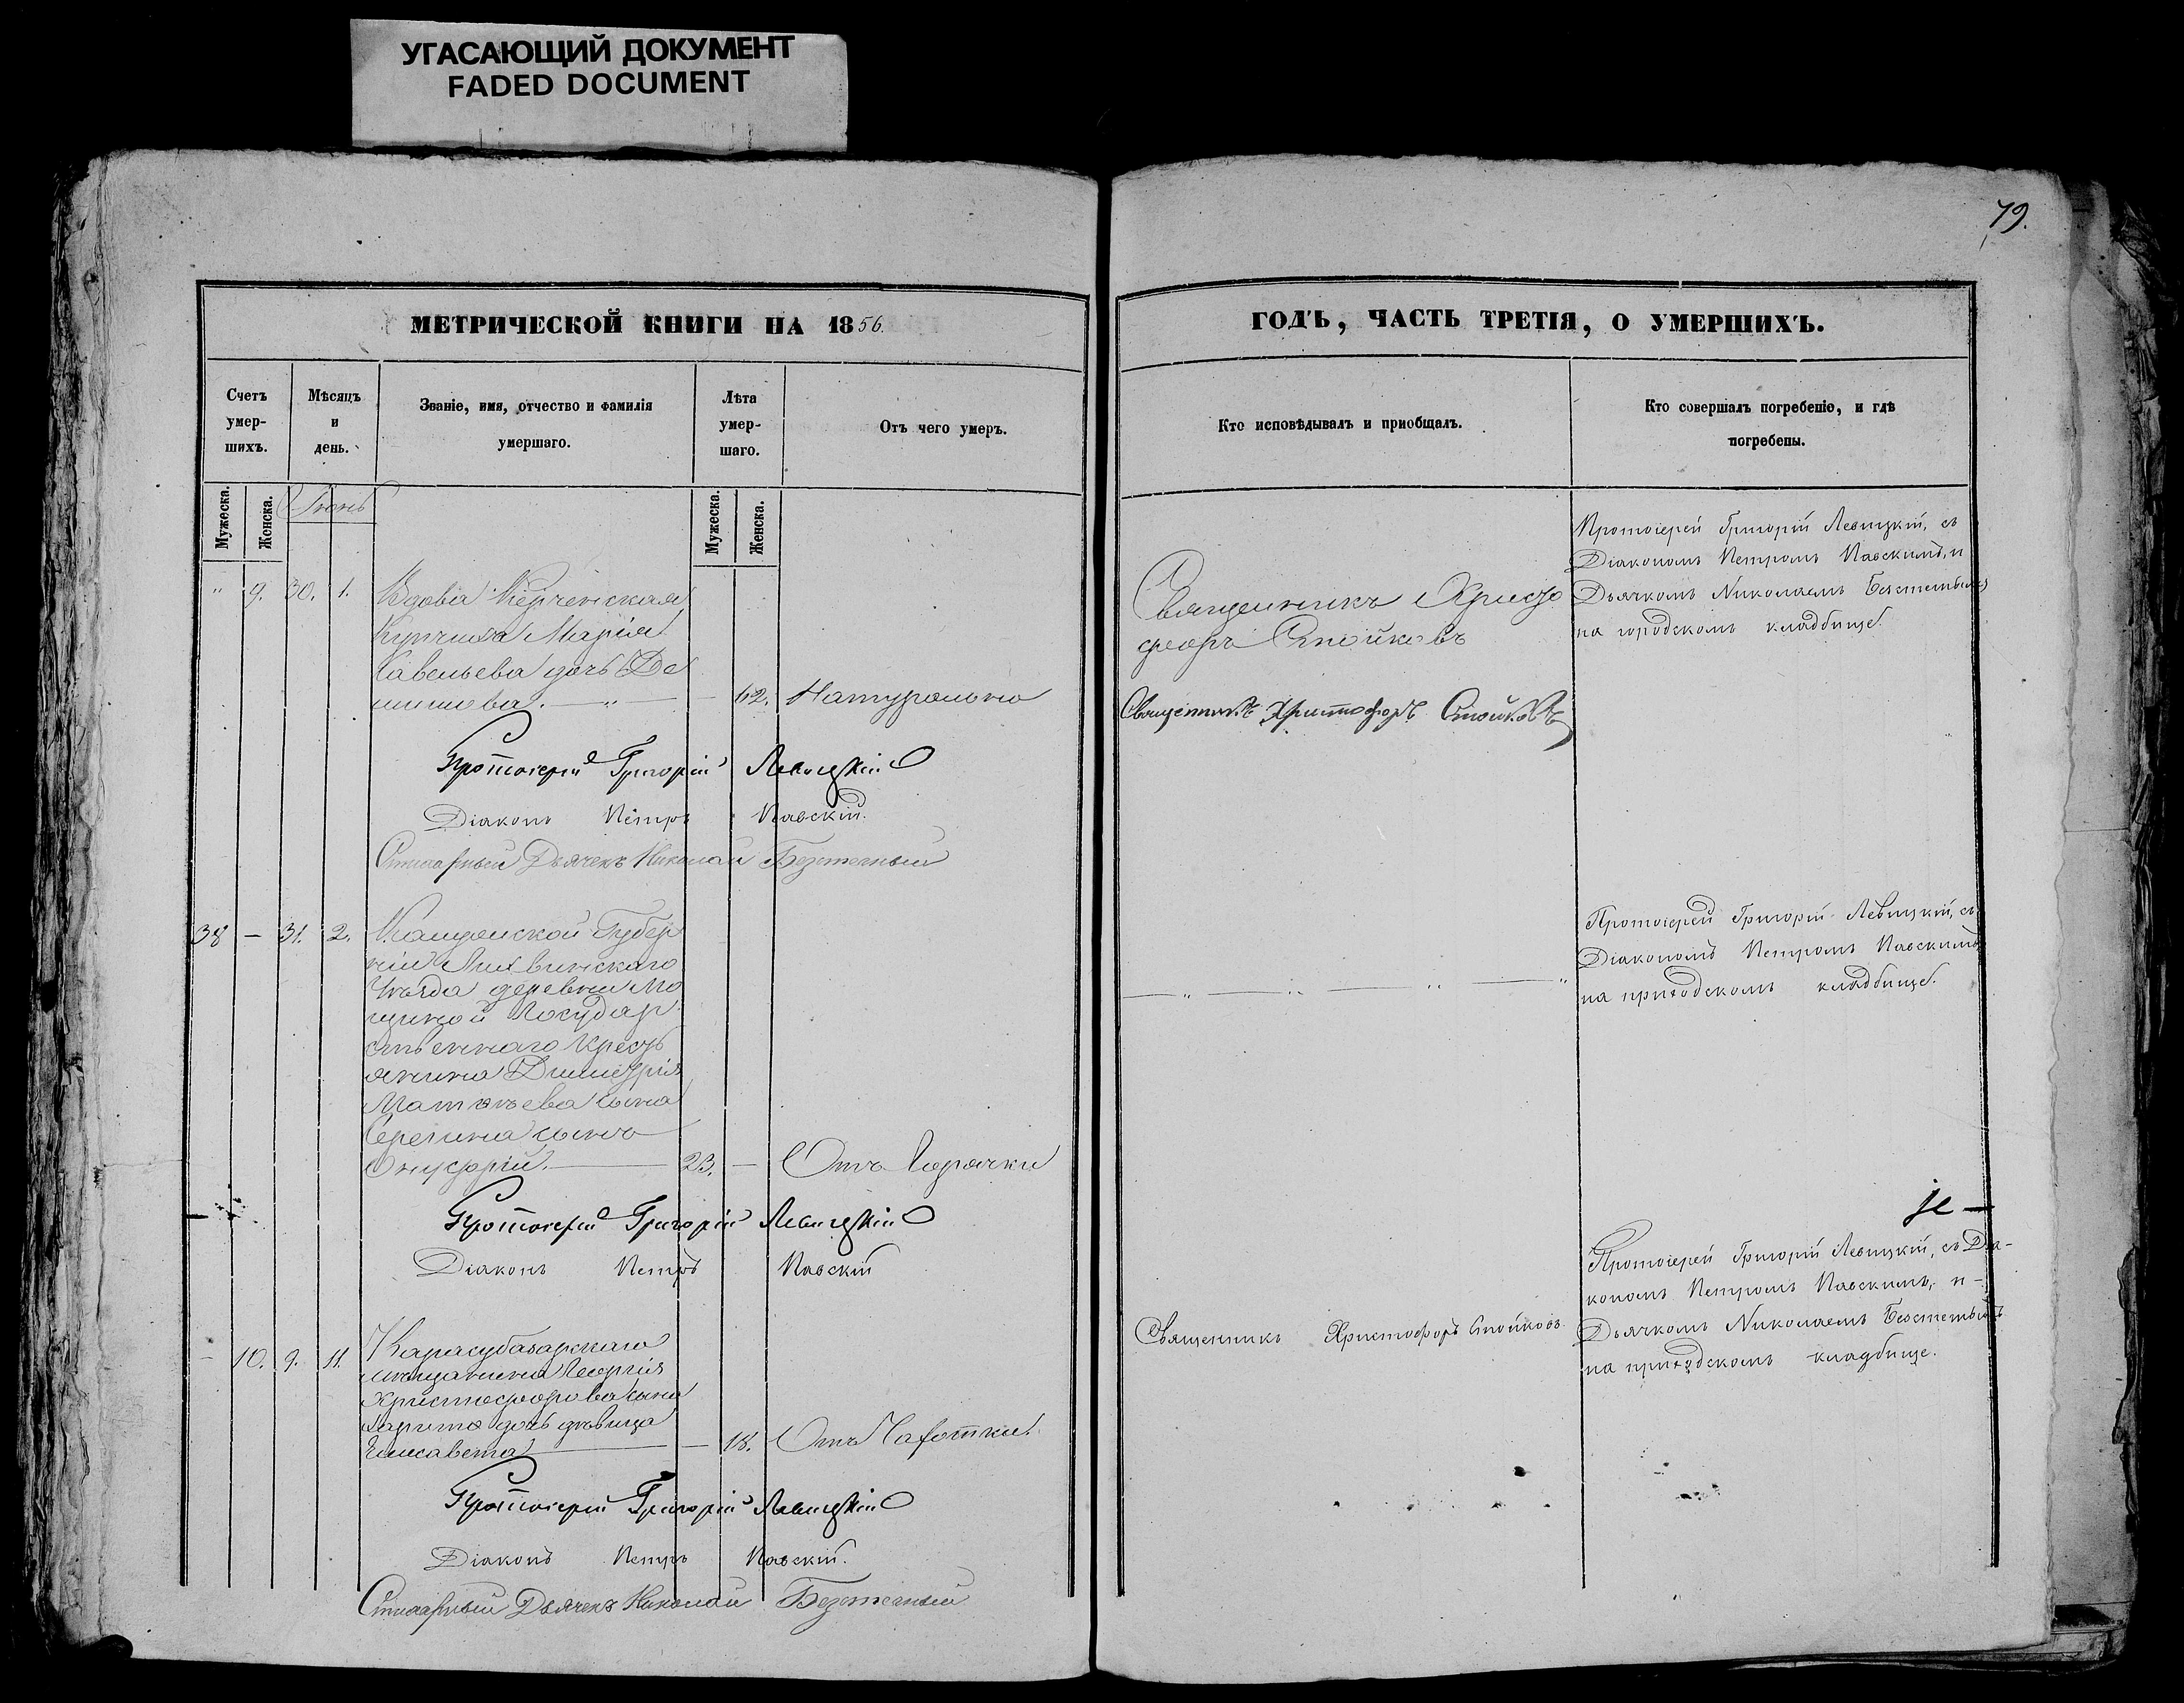 УГАСАЮЩИЙ ДОКУМЕНТ
FADED DOCUMENT
79.
МЕТРИЧЕСКОЙ КНИГИ НА 1856.
ГОДЪ, ЧАСТЬ ТРЕТІЯ, О УМЕРШИХЪ.
Счетъ
умер-
шихъ.
Мѣсяцъ
и
день.
Званіе, имя, отчество и фамилія
умершаго.
Лѣта
умер-
шаго.
Отъ чего умеръ.
Кто исповѣдывалъ и приобщалъ.
Кто совершалъ погребеніе, и гдѣ
погребены.
Мужеска.
Женска.
Мужеска.
Женска.
" 9. 30. 1. Вдова Керченская
Купчиха Марія
Савельева дочь
62. Натурально
Священникъ Христо
форъ Стойковъ
Священникъ Христофоръ Стойковъ
Протоіерей Григорій Левицкій, съ
Діакономъ Петромъ Павскимъ, и
Дьячкомъ Николаемъ
на городскомъ кладбище.
Протоіерей Григорій Левицкій
Діаконъ Петръ Павскій.
Стихарный Дьячекъ Николай
38 — 31. 2.
Губер
ніи Лихвинскаго
Уѣзда деревни
Государ
ственнаго Кресть
янина Димитрія
сына
Серегина сынъ
Онуфрій. — 23. — Отъ Горячки
Протоіерей Григорій Левицкій, съ
Діакономъ Петромъ Павскимъ,
на приходскомъ кладбище.
Протоіерей Григорій Левицкій
Діаконъ Петръ Павскій
— 10. 9. 11. Карасубазарскаго
мѣщанина Георгія
Христофорова сына
дочь дѣвица
Елисавета — 18. Отъ Чахотки.
Священникъ Христофоръ Стойковъ.
Протоіерей Григорій Левицкій, съ Діа-
кономъ Петромъ Павскимъ, и
Дьячкомъ Николаемъ
на приходскомъ кладбище.
Протоіерей Григорій Левицкій
Діаконъ Петръ Павскій.
Стихарный Дьячекъ Николай